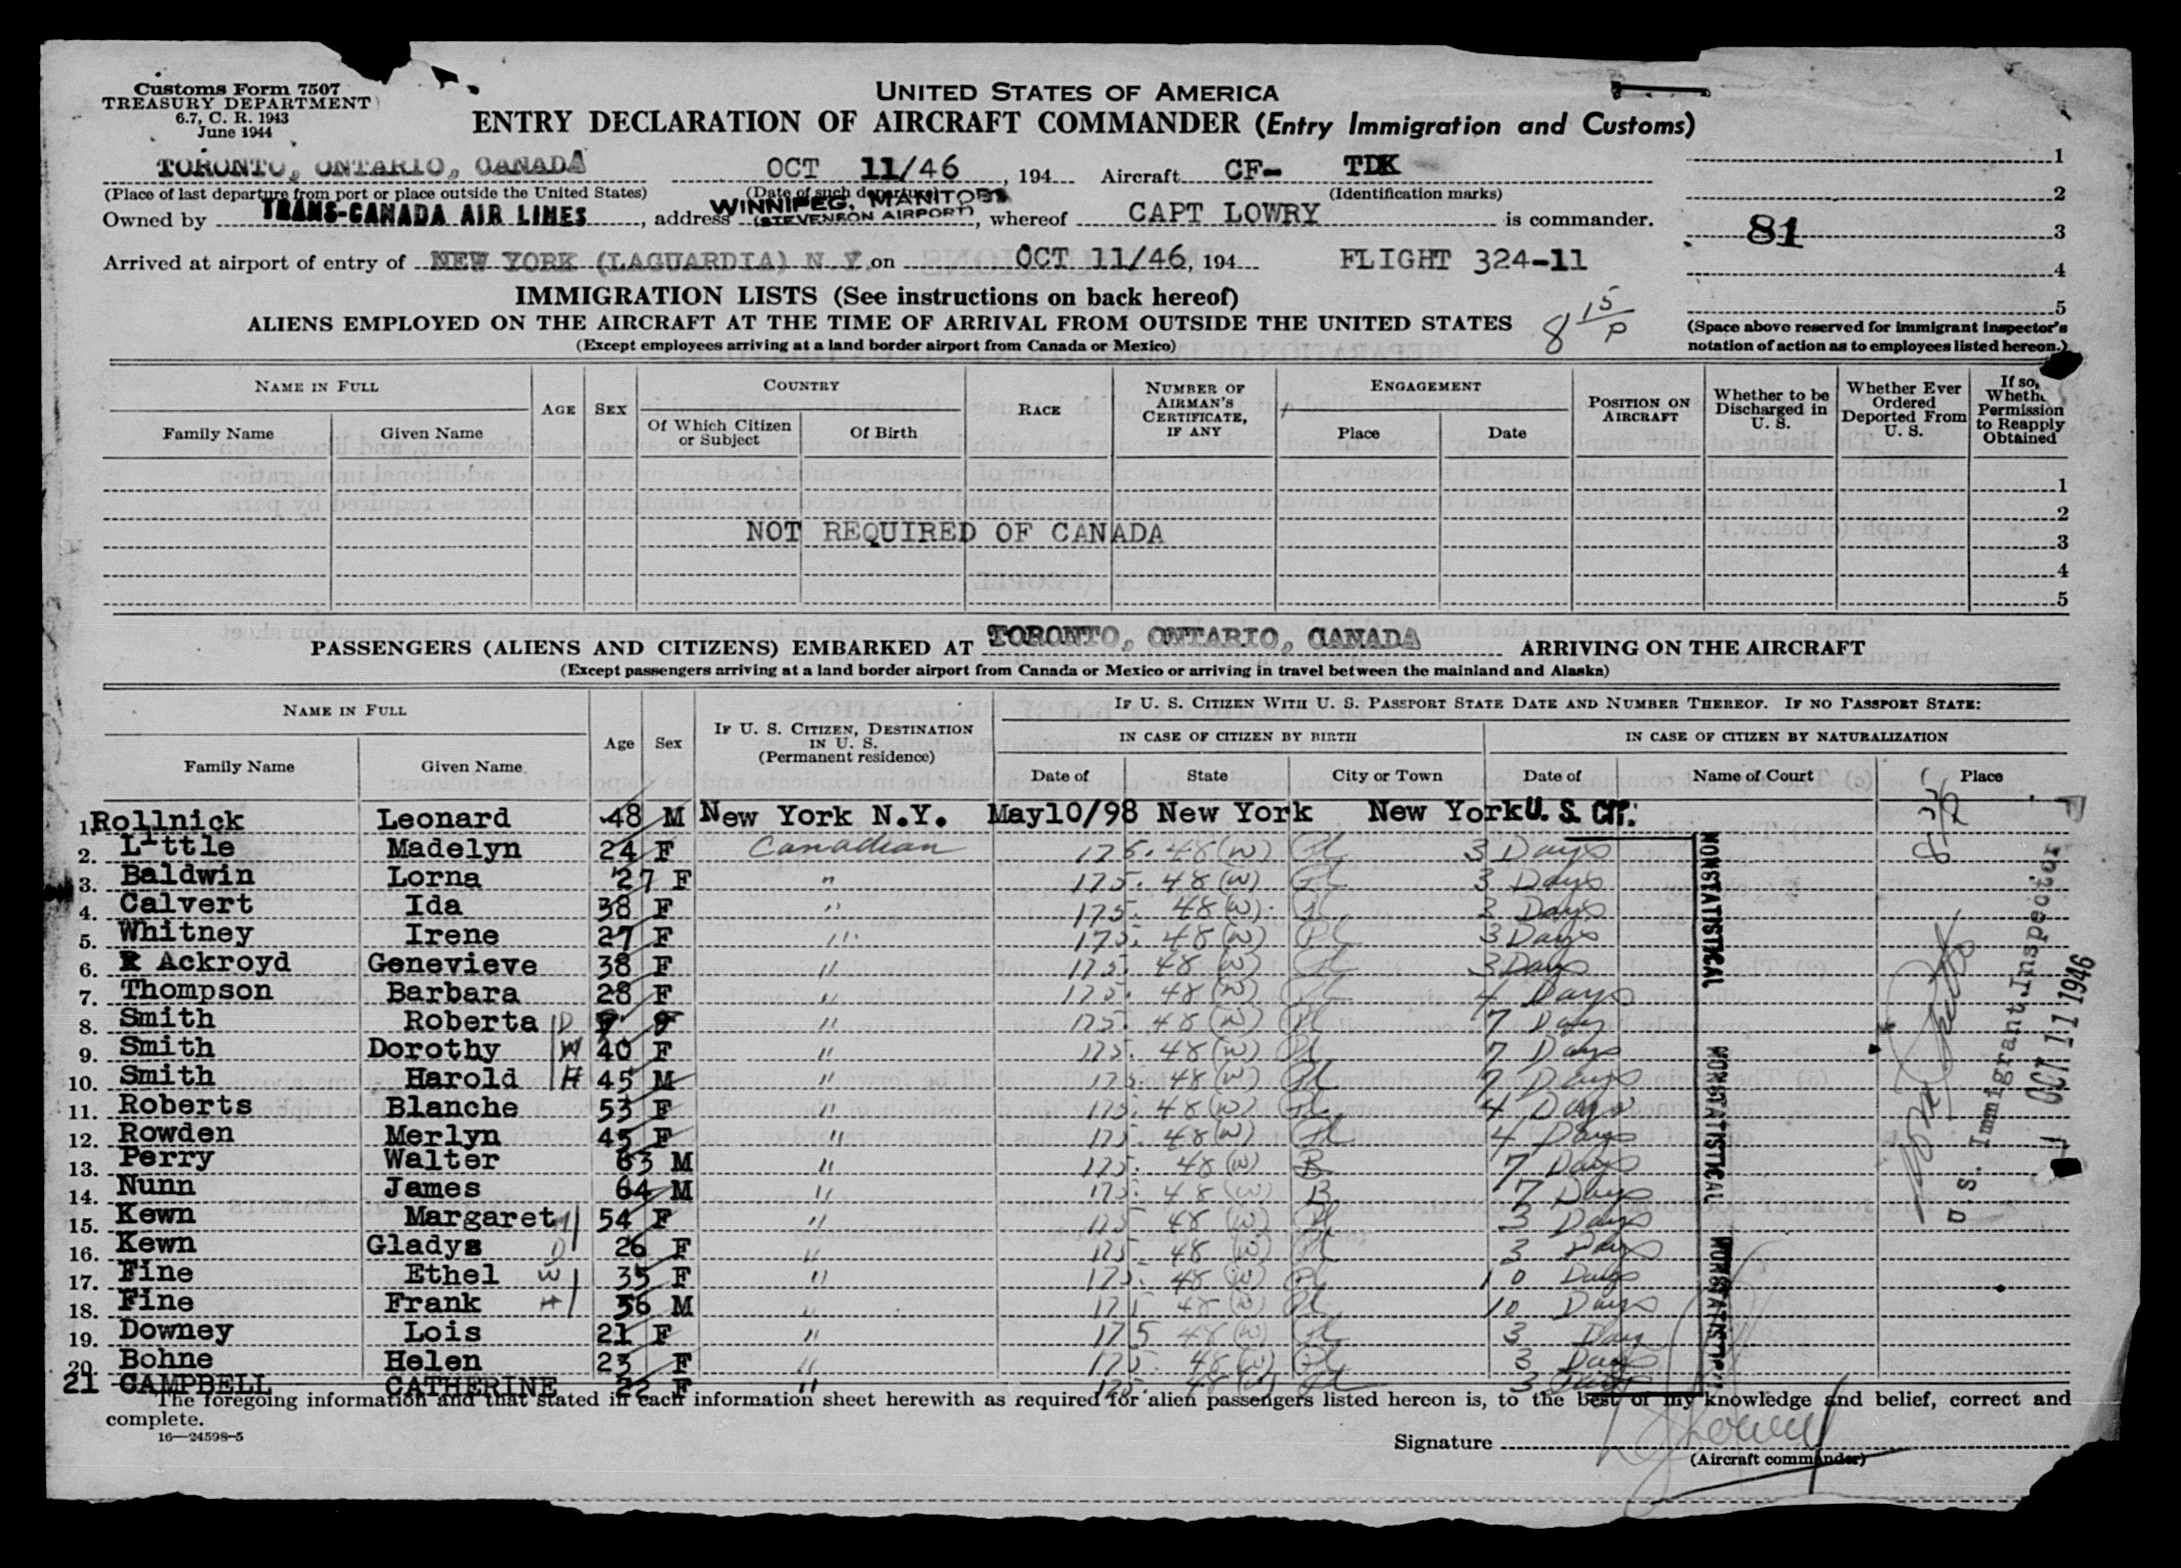 Customs Form 7507
TREASURY DEPARTMENT
6.7, C. R. 1943
June 1944
UNITED STATES OF AMERICA
ENTRY DECLARATION OF AIRCRAFT COMMANDER (Entry Immigration and Customs)
TORONTO, ONTARIO, CANADA OCT 11/46, 194 Aircraft CF- TDK 1
(Place of last departure from port or place outside the United States) (Date of such departure) (Identification marks) 2
Owned by TRANS-CANADA AIR LINES, address WINNIPEG, MANITOBA (STEVENSON AIRPORT), whereof CAPT LOWRY is commander.
81 3
4
Arrived at airport of entry of NEW YORK (LAGUARDIA) N Y on OCT 11/46, 194 FLIGHT 324-11
5
IMMIGRATION LISTS (See instructions on back hereof)
ALIENS EMPLOYED ON THE AIRCRAFT AT THE TIME OF ARRIVAL FROM OUTSIDE THE UNITED STATES 8 15/P
(Except employees arriving at a land border airport from Canada or Mexico)
(Space above reserved for immigrant inspector's
notation of action as to employees listed hereon.)
NAME IN FULL AGE SEX COUNTRY RACE NUMBER OF AIRMAN'S CERTIFICATE, IF ANY ENGAGEMENT POSITION ON AIRCRAFT Whether to be Discharged in U. S. Whether Ever Ordered Deported From U. S. If so, Permission to Reapply Obtained
Family Name Given Name Of Which Citizen or Subject Of Birth Place Date
1
2
NOT REQUIRED OF CANADA
3
4
5
PASSENGERS (ALIENS AND CITIZENS) EMBARKED AT TORONTO, ONTARIO, CANADA ARRIVING ON THE AIRCRAFT
(Except passengers arriving at a land border airport from Canada or Mexico or arriving in travel between the mainland and Alaska)
NAME IN FULL Age Sex IF U. S. CITIZEN, DESTINATION IN U. S. (Permanent residence) IF U. S. CITIZEN WITH U. S. PASSPORT STATE DATE AND NUMBER THEREOF. IF NO PASSPORT STATE:
IN CASE OF CITIZEN BY BIRTH IN CASE OF CITIZEN BY NATURALIZATION
Family Name Given Name Date of State City or Town Date of Name of Court Place
1. Rollnick Leonard 48 M New York N.Y. May10/98 New York New York U. S. CIT.
2. Little Madelyn 24 F Canadian 175. 48 (W) Pl 3 Days
3. Baldwin Lorna 27 F " 175. 48 (W) Pl 3 Days
4. Calvert Ida 38 F " 175. 48 (W) Pl 3 Days
5. Whitney Irene 27 F " 175. 48 (W) Pl 3 Days
6. Ackroyd Genevieve 38 F " 175. 48 (W) Pl 3 Days
7. Thompson Barbara 28 F " 175. 48 (W) Pl 4 Days
8. Smith Roberta D F " 175. 48 (W) Pl 7 Day
9. Smith Dorothy W 40 F " 175. 48 (W) Pl 7 Days
10. Smith Harold H 45 M " 175. 48 (W) Pl 7 Days
11. Roberts Blanche 53 F " 175. 48 (W) Pl 4 Days
12. Rowden Merlyn 45 F " 175. 48 (W) Pl 4 Days
13. Perry Walter 63 M " 175. 48 (W) B 7 Days
14. Nunn James 64 M " 175. 48 (W) B 7 Days
15. Kewn Margaret M 54 F " 175 48 (W) Pl 3 Days
16. Kewn Gladys D 26 F " 175 48 (W) Pl 3 Days
17. Fine Ethel W 35 F " 175. 48 (W) Pl 10 Days
18. Fine Frank H 36 M " 175 48 (W) Pl 10 Days
19. Downey Lois 21 F " 175 48 (W) Pl 3 Day
20. Bohne Helen 23 F " 175. 48 (W) Pl 3 Days
21 CAMPBELL CATHERINE 22 F " 175. 48 (W) Pl 3 Days
NONSTATISTICAL
NONSTATISTICAL
NONSTATISTICAL
U. S. Immigrant Inspector
OCT 11 1946
The foregoing information and that stated in each information sheet herewith as required for alien passengers listed hereon is, to the best of my knowledge and belief, correct and
complete.
16—24598-5
Signature
(Aircraft commander)